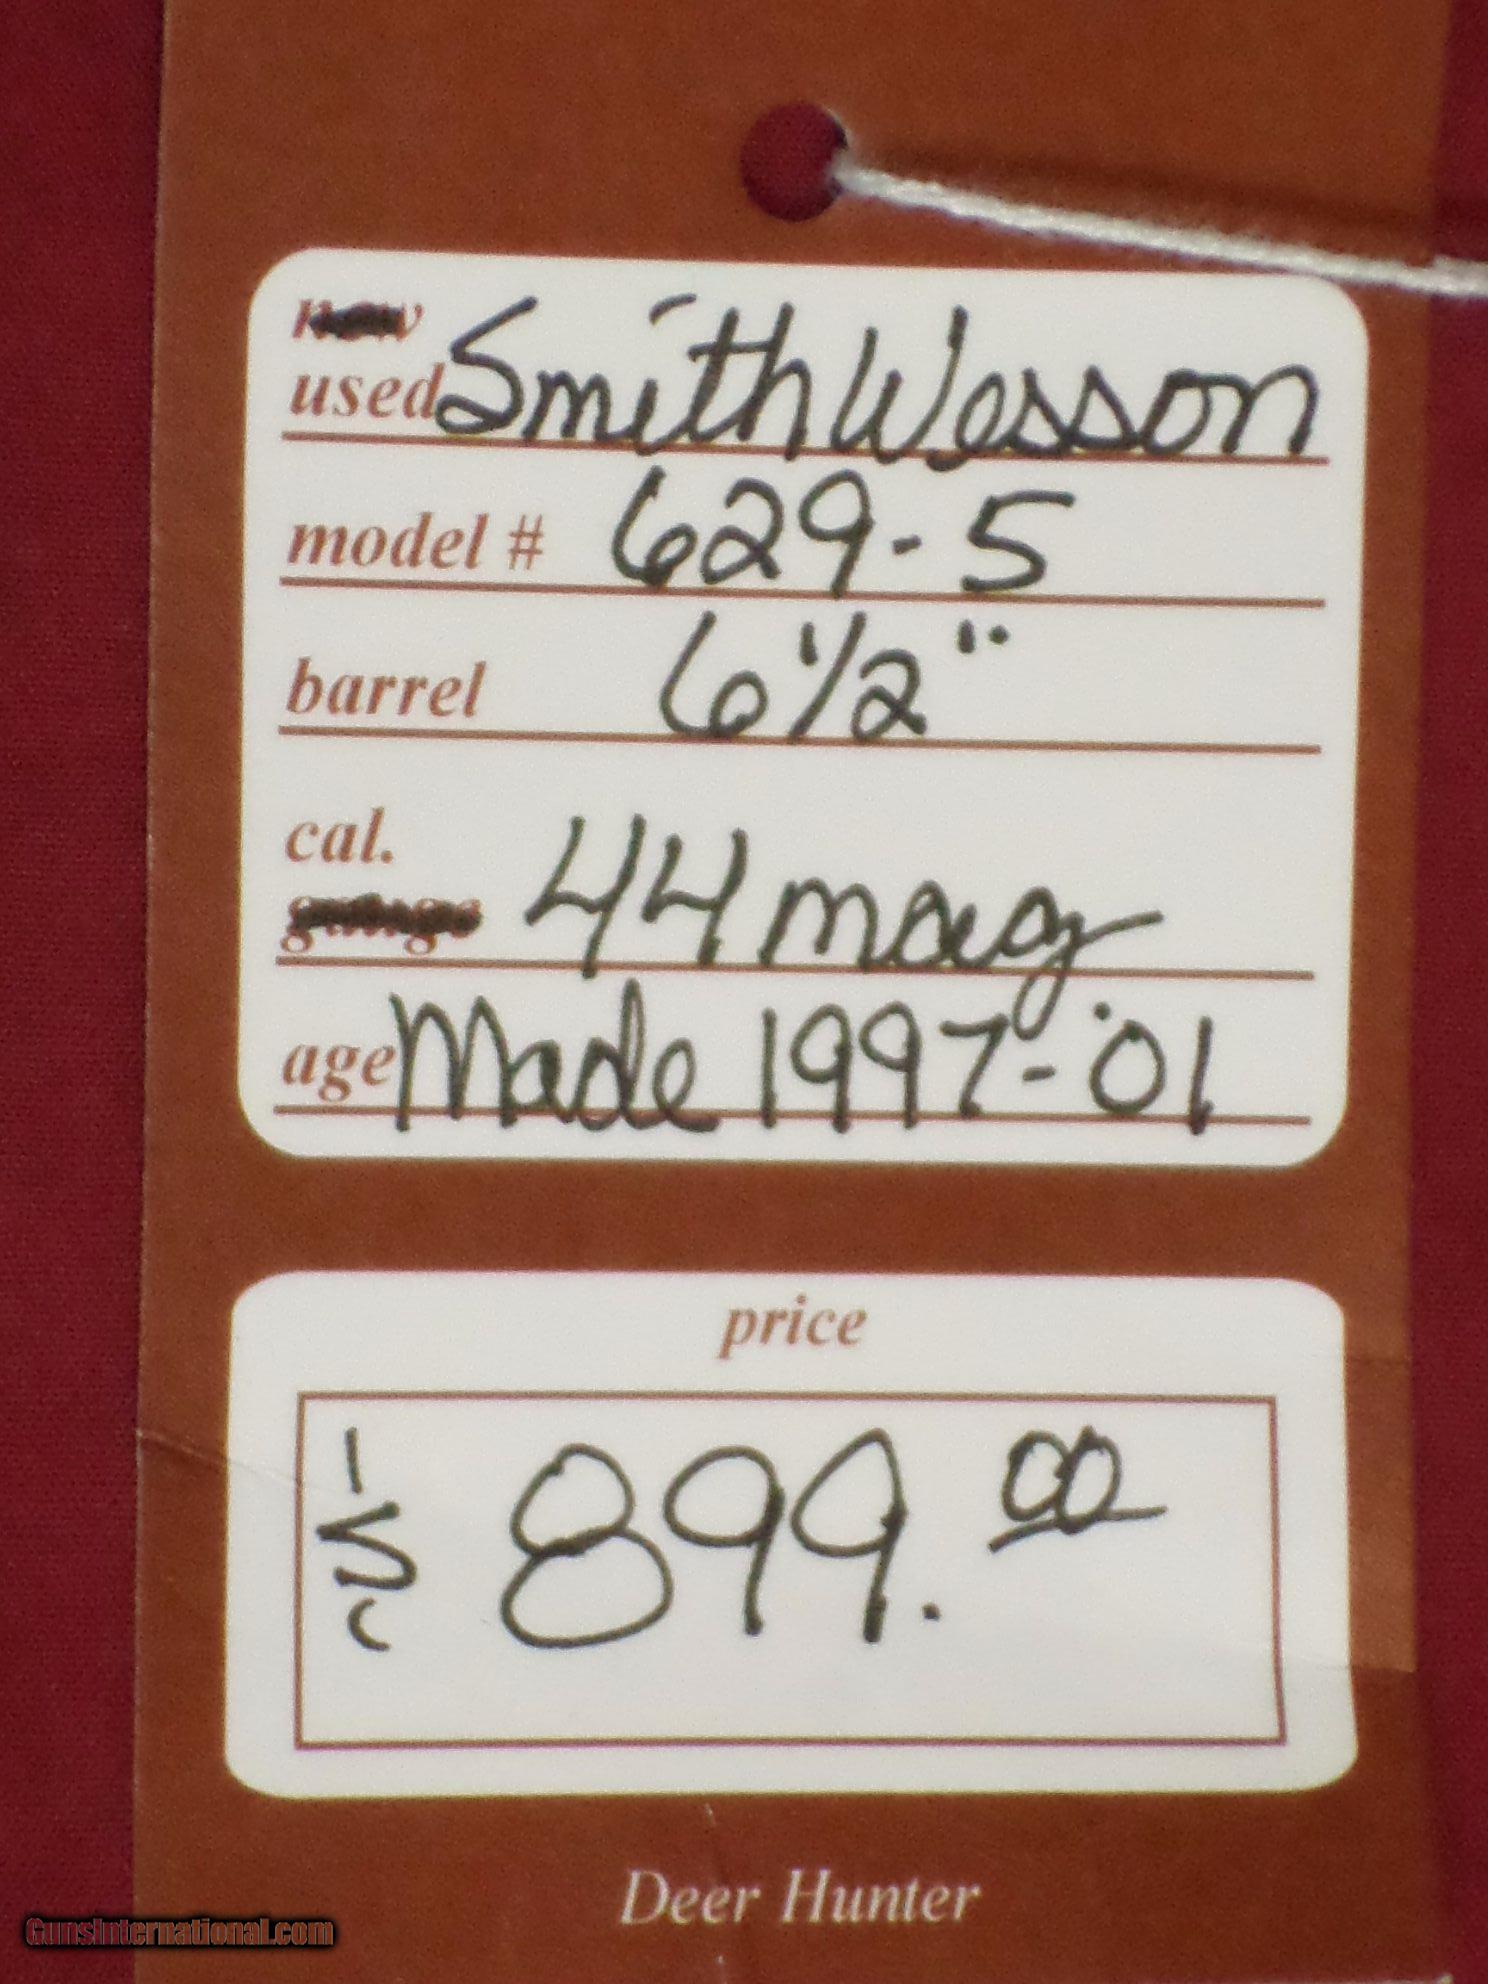 new
used Smith Wesson
model # 629-5
barrel 6 1/2"
cal. 44 mag
gauge
age Made 1997-'01
price
$ 899.00
Deer Hunter
GunsInternational.com